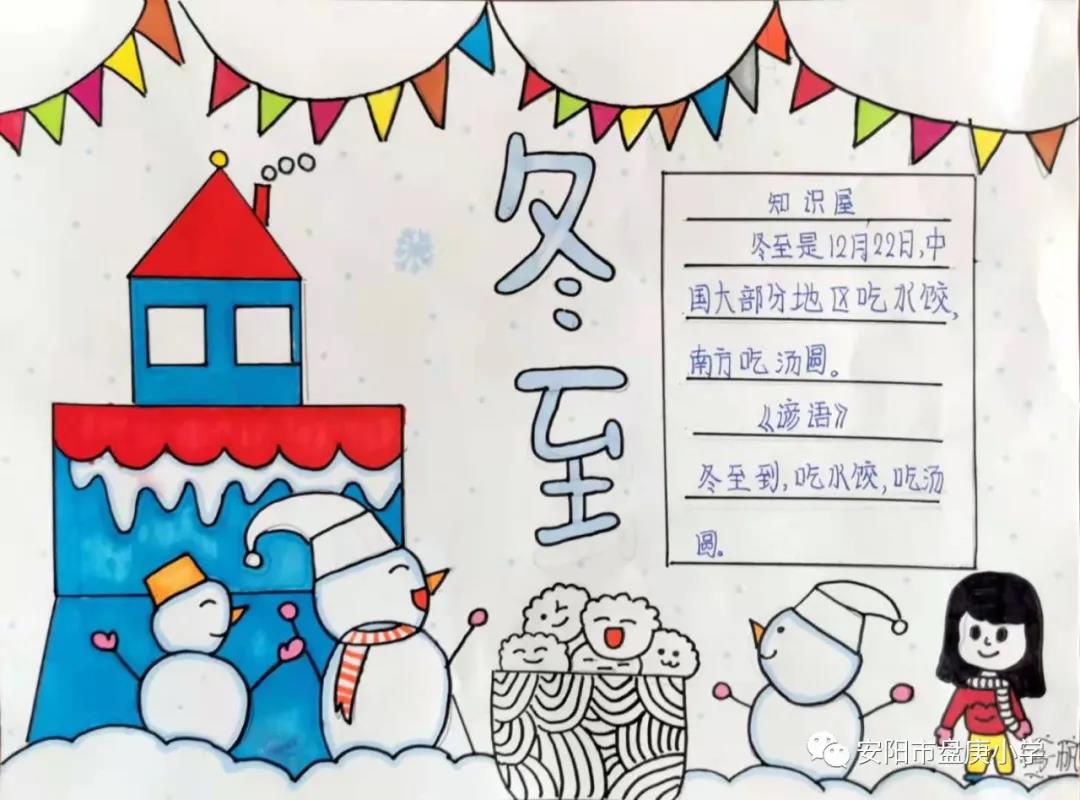 冬至
知识屋
冬至是12月22日,中
国大部分地区吃水饺,
南方吃汤圆。
《谚语》
冬至到,吃水饺,吃汤
圆。
安阳市盘庚小学